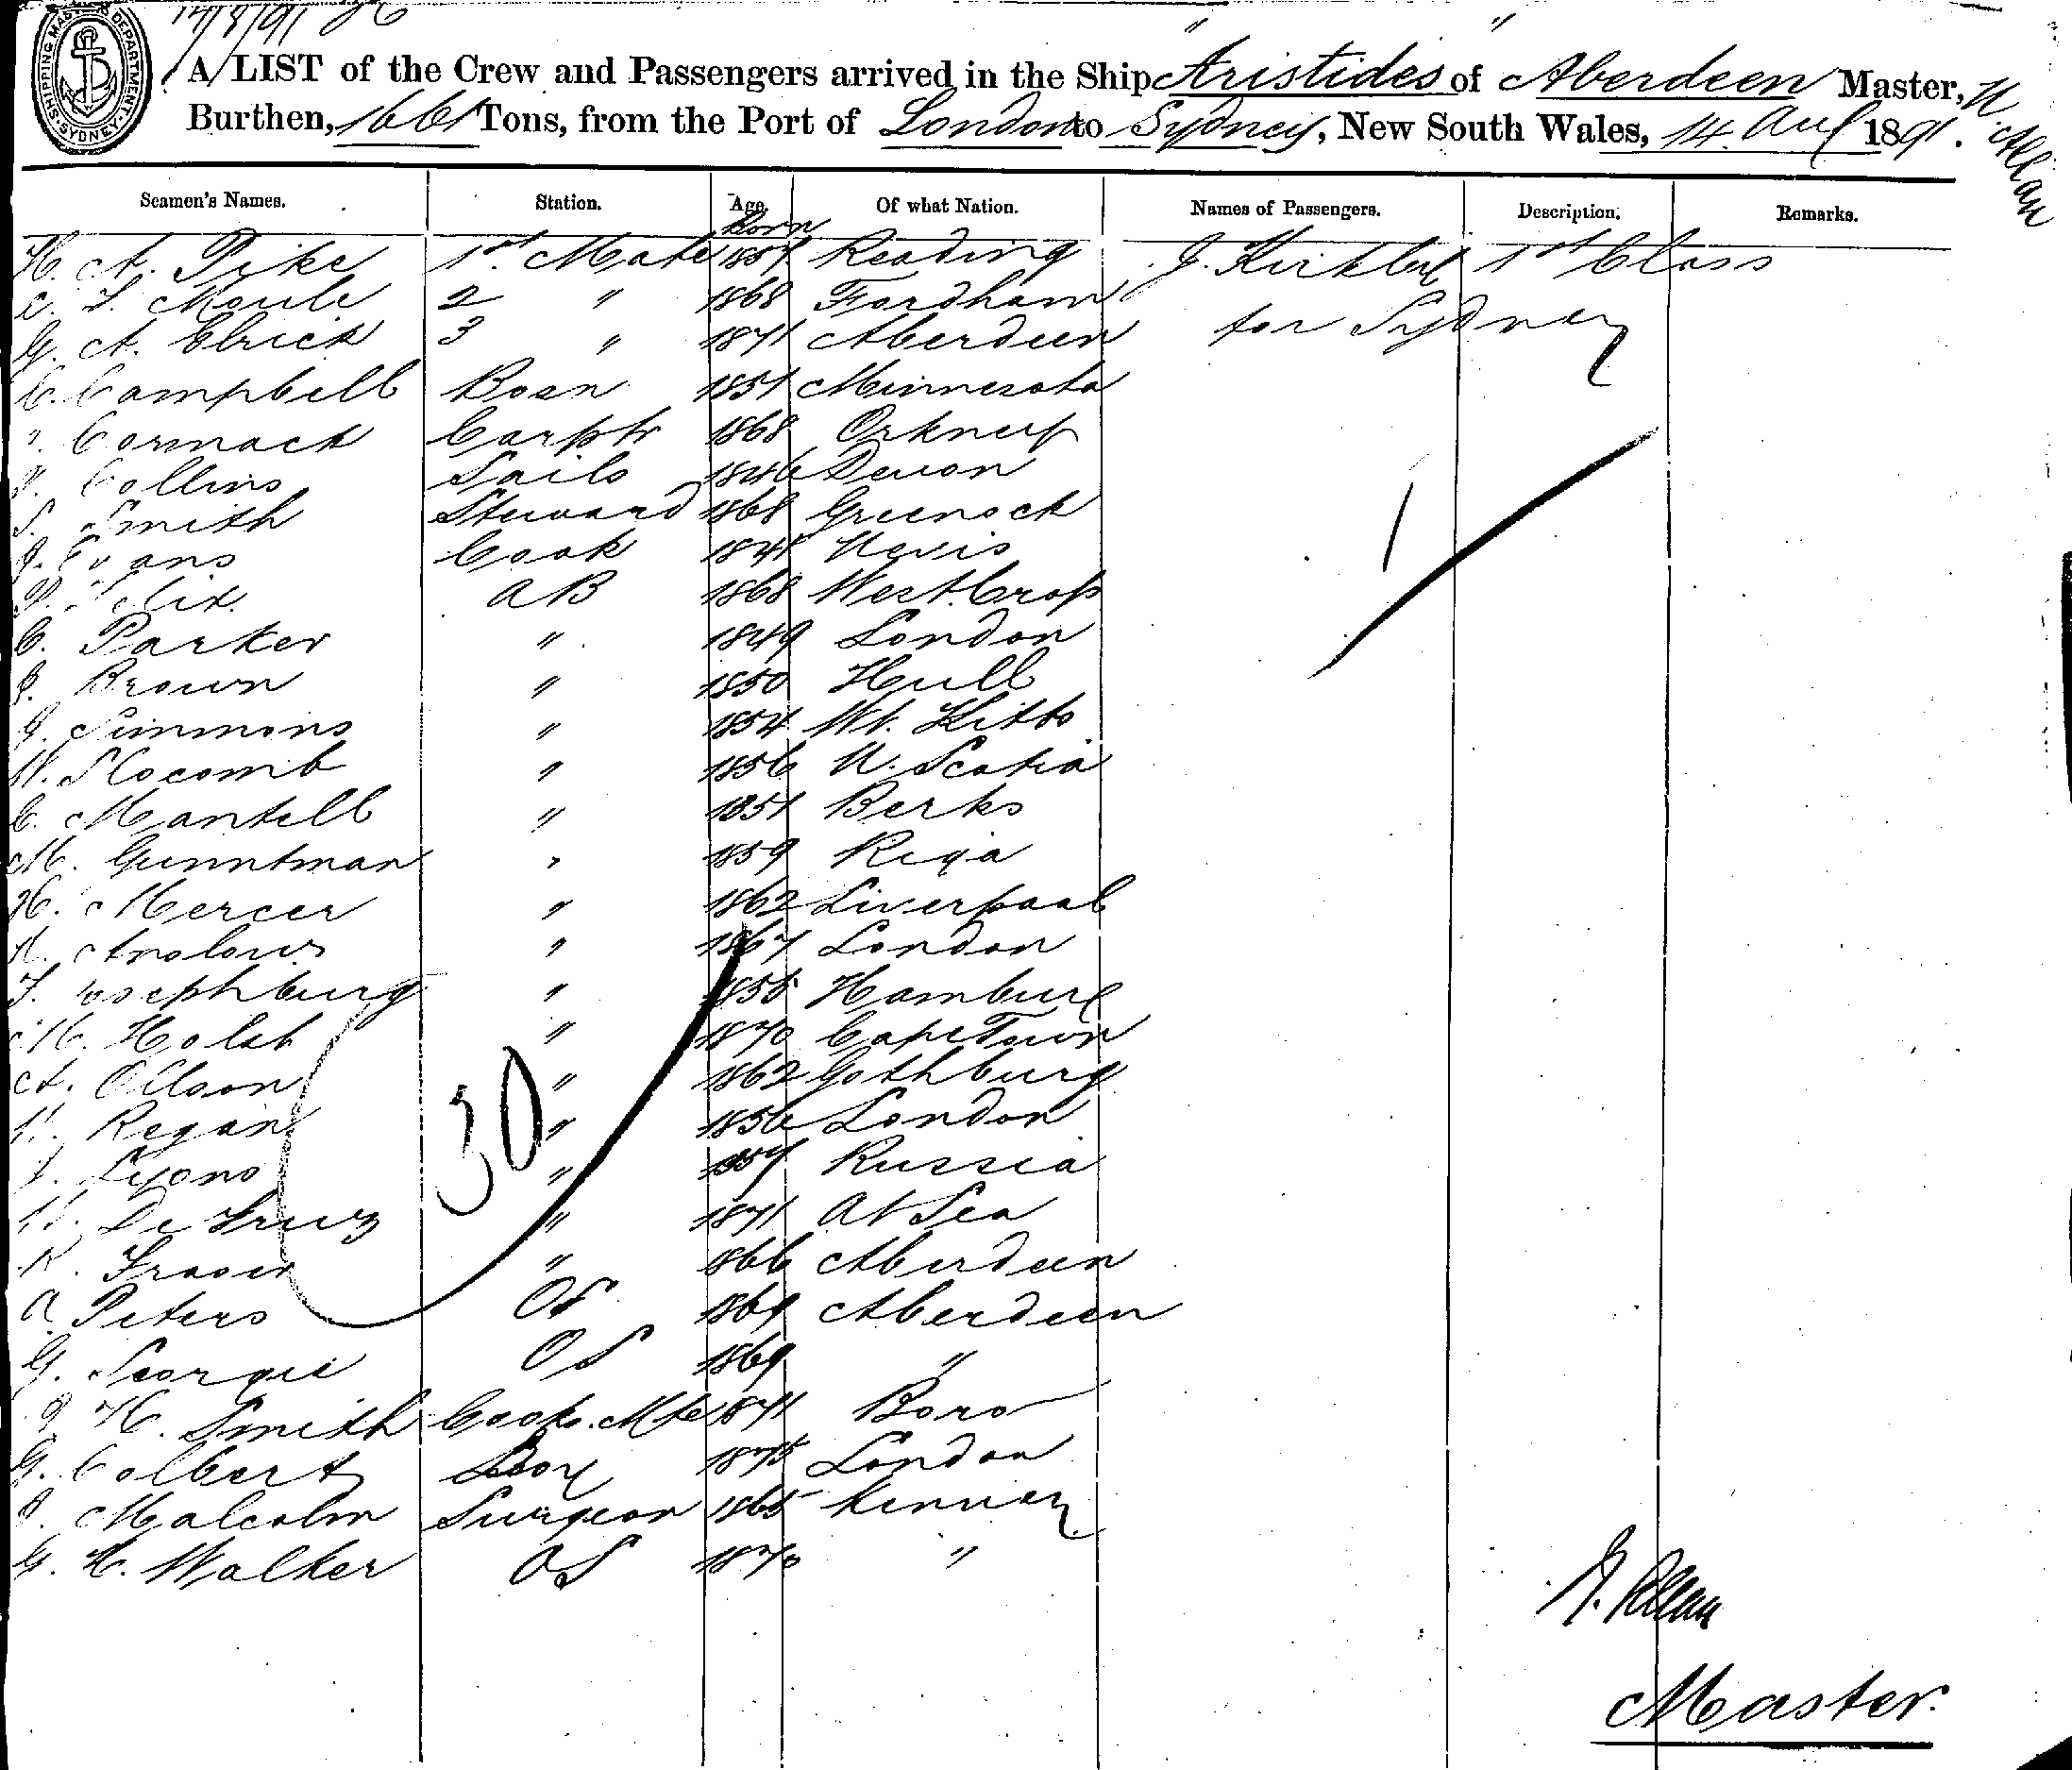 17/8/91
SHIPPING MASTER'S DEPARTMENT. SYDNEY.
A LIST of the Crew and Passengers arrived in the Ship Aristides of Aberdeen Master, Allan
Burthen, 1661 Tons, from the Port of London to Sydney, New South Wales, 14. Aug 1891.
Seamen's Names. Station. Age. Of what Nation. Names of Passengers. Description. Remarks.
Born
H. A. Pike 1st Mate 1857 Reading J. 1st Class
Moule 2 " 1868 Fordham for Sydney
G. A. Elrick 3 " 1871 Aberdeen
C. Campbell Bosn 1851 Minnesota
Cormack Carptr 1868 Orkney
Collins Sails 1846 Devon
S. Smith Steward 1868 Greenock
J. Evans Cook 1841 Nevis
Felix AB 1868 West
C. Parker " 1849 London
J. Brown " 1850 Hull
G. Simmons " 1854 Kitts
W. Slocomb " 1856 N. Scotia
C. Mantell " 1851 Berks
M. Gunntman " 1859 Riga
H. Mercer " 1862 Liverpool
" 1867 London
F. Josephburg " 1855 Hamburg
M. Holst " 1870 Cape Town
A. Ollson " 1862 Gothburg
Regan " 1856 London
Lyons " 1857 Russia
" 1871 At Sea
R. Fraser " 1866 Aberdeen
30
A. Peters OS 1869 Aberdeen
G. Georgie OS 1869 "
J. H. Smith Cooks Mte 1871 Boro
G. Colbert Boy 1875 London
J. Malcolm Surgeon 1865
G. H. Walker OS 1870 "
1
Allan
Master.